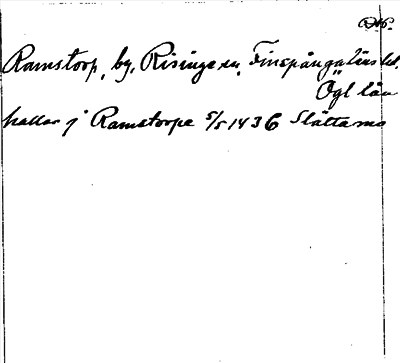 Ramstorp, by, Risinge sn, Finspånga läns hd,
Ögl län
hallar j Ramstorpe 5/5 1436 Slättamo